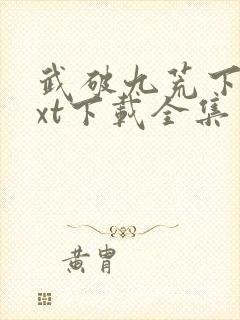 武破九荒下
xt下载全集
黄胄